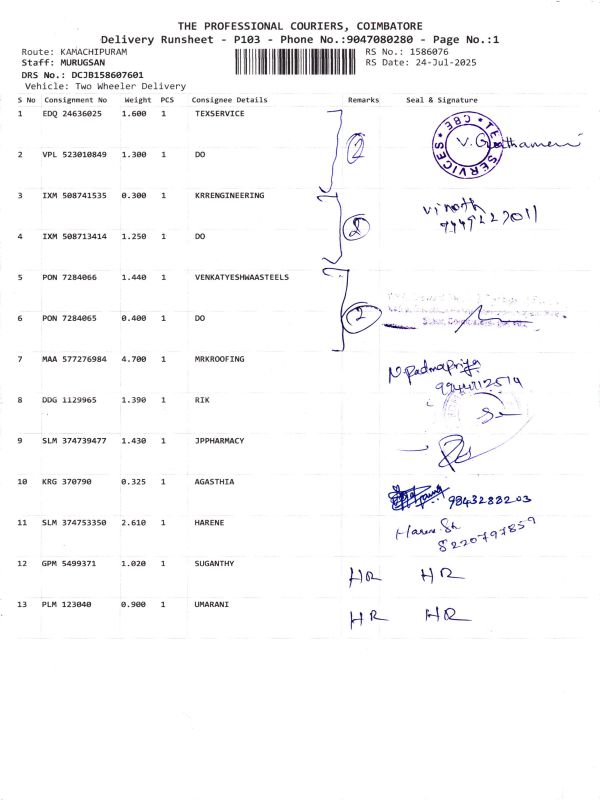 THE PROFESSIONAL COURIERS, COIMBATORE
Delivery Runsheet - P103 - Phone No.:9047080280 - Page No.:1
Route: KAMACHIPURAM RS No.: 1586076
Staff: MURUGSAN RS Date: 24-Jul-2025
DRS No.: DCJB158607601
Vehicle: Two Wheeler Delivery
S No Consignment No Weight PCS Consignee Details Remarks Seal & Signature
1 EDQ 24636025 1.600 1 TEXSERVICE
2 VPL 523010849 1.300 1 DO 2
TEX SERVICES * CBE *
3 IXM 508741535 0.300 1 KRRENGINEERING Vinoth
4 IXM 508713414 1.250 1 DO 2
5 PON 7284066 1.440 1 VENKATYESHWAASTEELS
6 PON 7284065 0.400 1 DO 2
7 MAA 577276984 4.700 1 MRKROOFING N.Padmapriya
8 DDG 1129965 1.390 1 RIK
9 SLM 374739477 1.430 1 JPPHARMACY
10 KRG 370790 0.325 1 AGASTHIA 9843288203
11 SLM 374753350 2.610 1 HARENE Harene Sk
8220797859
12 GPM 5499371 1.020 1 SUGANTHY HR HR
13 PLM 123040 0.900 1 UMARANI HR HR